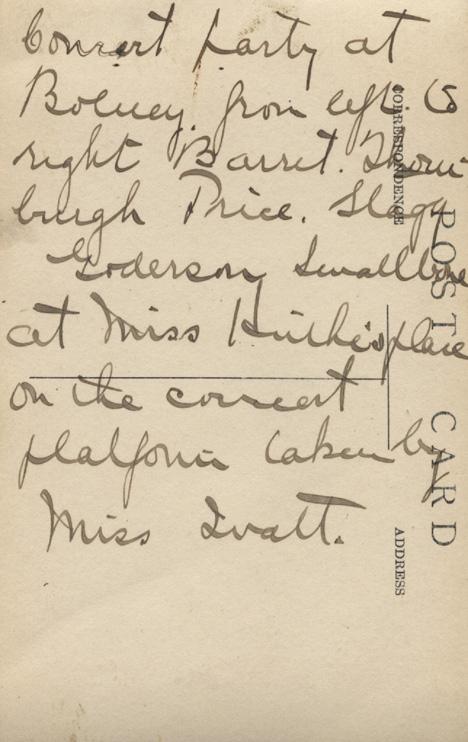 Concert party at
Bolney. from left to
right Barret. Thorn-
burgh Price. Slagg
Goderson Smallbone
at Miss place
on the concert
platform taken by
Miss
CORRESPONDENCE
POST CARD
ADDRESS